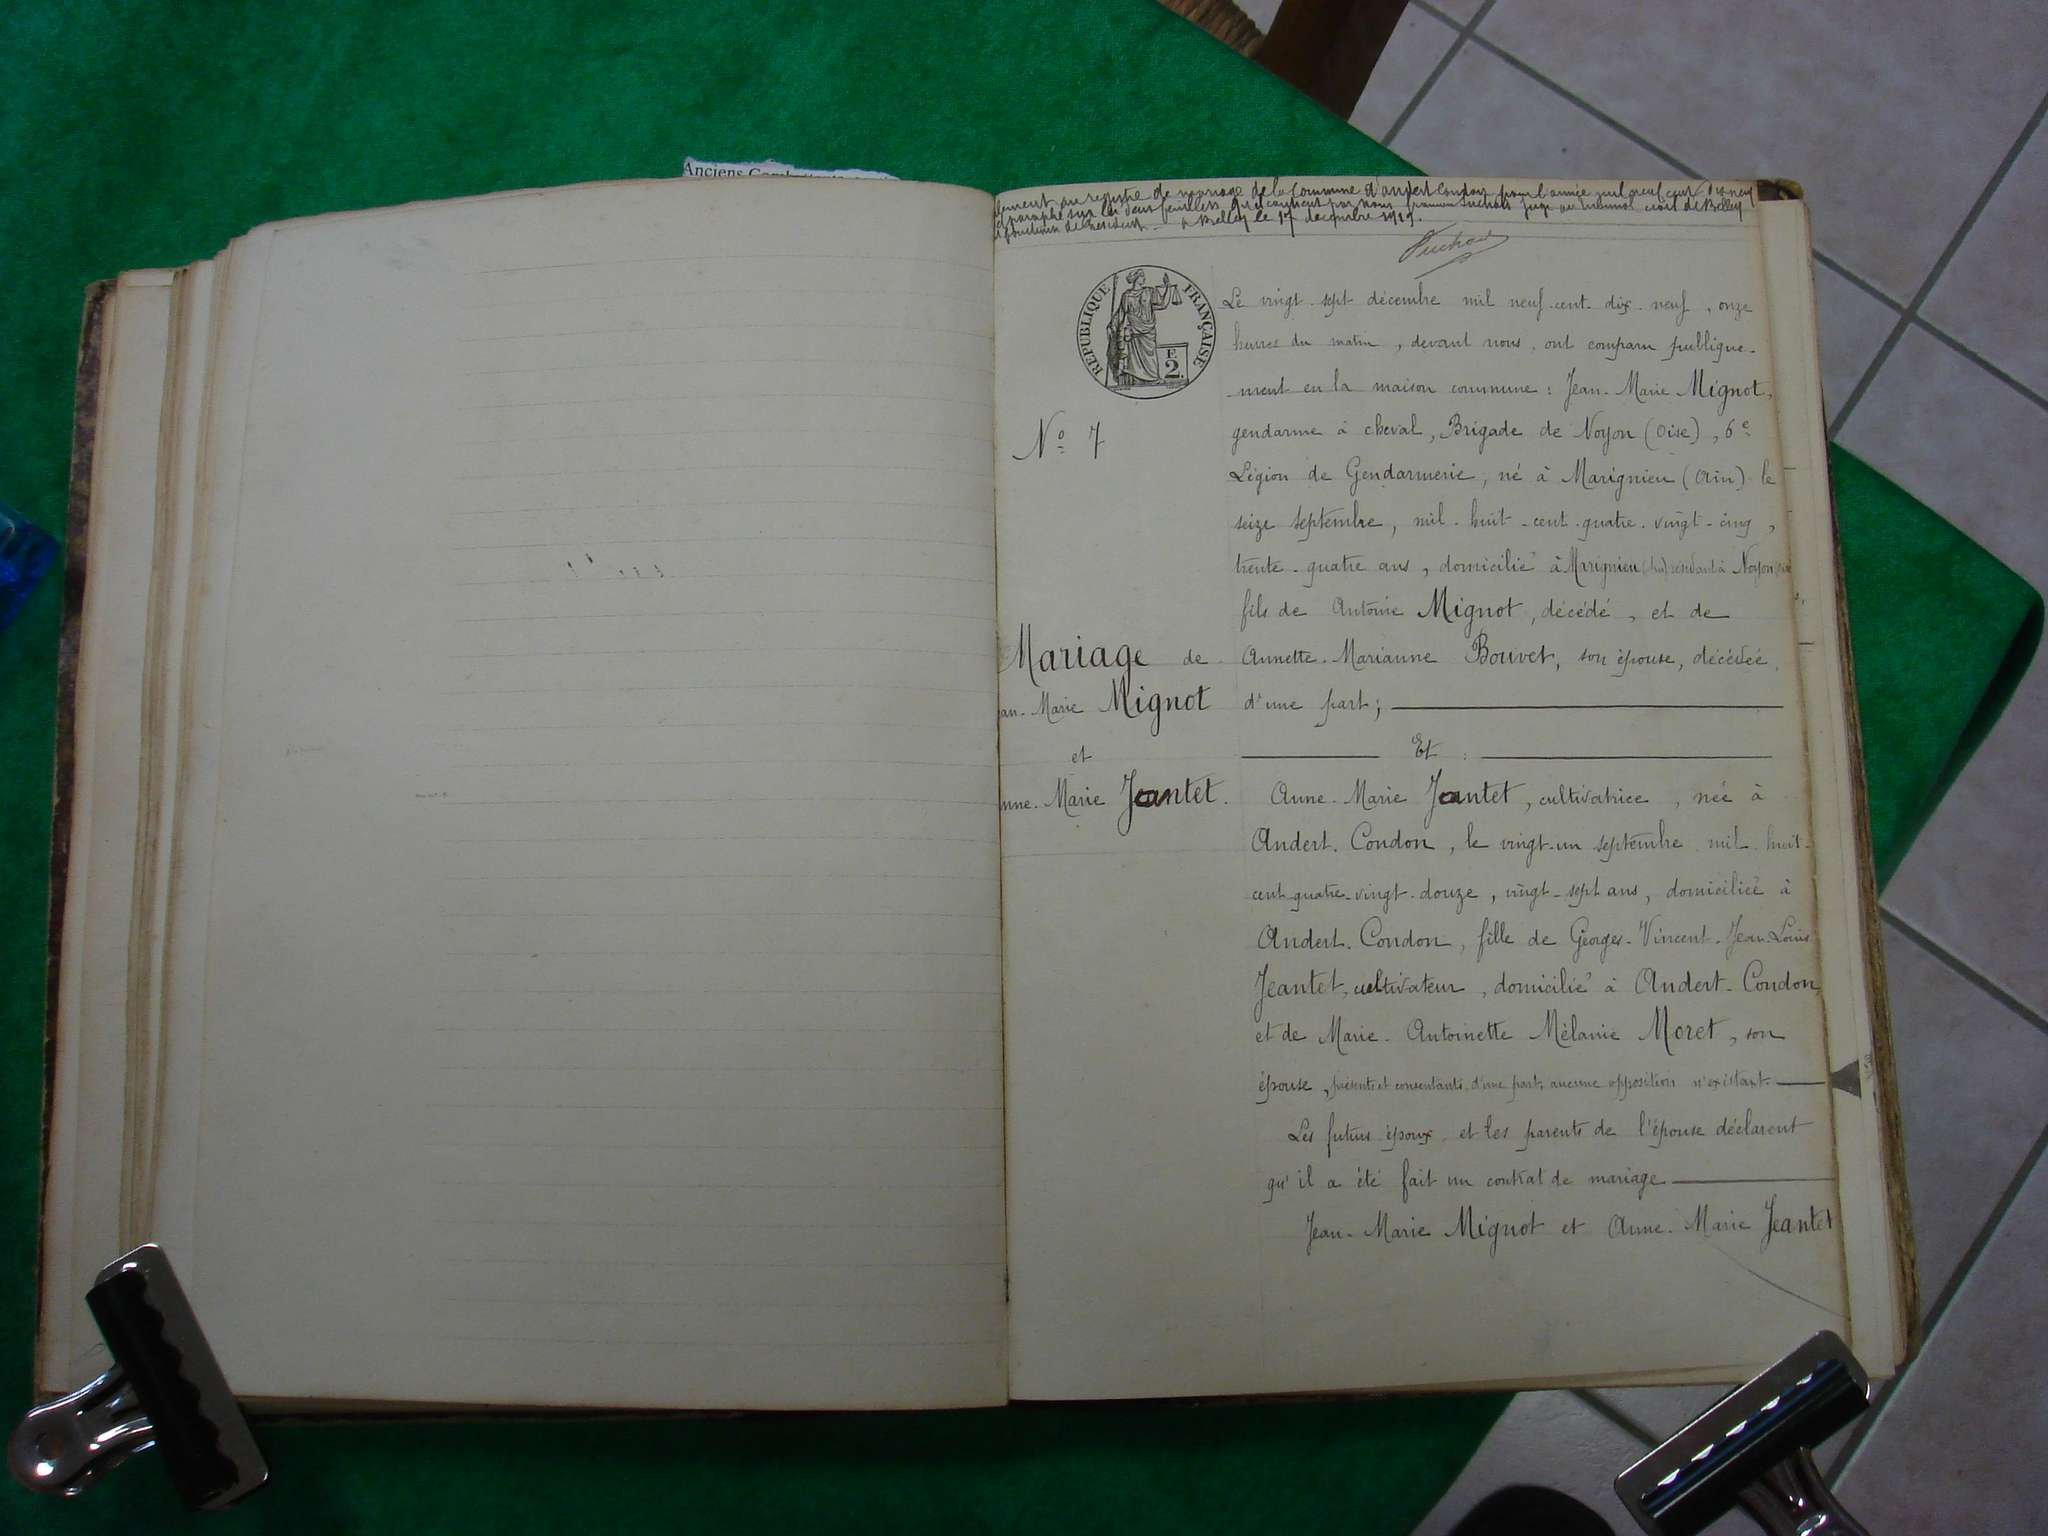 Anciens
au registre de mariage de la Commune d'andert Condon pour l'année mil neuf cent dix neuf
paraphé sur les deux feuillets par nous juge au tribunal civil de Belley
à Belley le 17 décembre 1919.
REPUBLIQUE FRANÇAISE
E
2.
Le vingt-sept décembre mil neuf-cent-dix-neuf, onze
heures du matin, devant nous, ont comparu publique-
ment en la maison commune : Jean-Marie Mignot,
gendarme à cheval, Brigade de Noyon (Oise), 6e
Légion de Gendarmerie, né à Marignieu (Ain) le
seize septembre, mil-huit-cent-quatre-vingt-cinq,
trente-quatre ans, domicilié à Marignieu (Ain) résidant à Noyon
fils de Antoine Mignot, décédé, et de
Annette-Marianne Bouvet, son épouse, décédée,
d'une part;
Et :
Anne-Marie Jeantet, cultivatrice, née à
Andert-Condon, le vingt-un septembre mil-huit-
cent-quatre-vingt-douze, vingt-sept ans, domiciliée à
Andert-Condon, fille de Georges-Vincent-Jean-Louis
Jeantet, cultivateur, domicilié à Andert-Condon,
et de Marie-Antoinette Mélanie Moret, son
épouse, présents et consentants, d'une part, aucune opposition n'existant.
Les futurs époux et les parents de l'épouse déclarent
qu'il a été fait un contrat de mariage
Jean-Marie Mignot et Anne-Marie Jeantet
No 7
Mariage de
an-Marie Mignot
et
nne-Marie Jeantet.